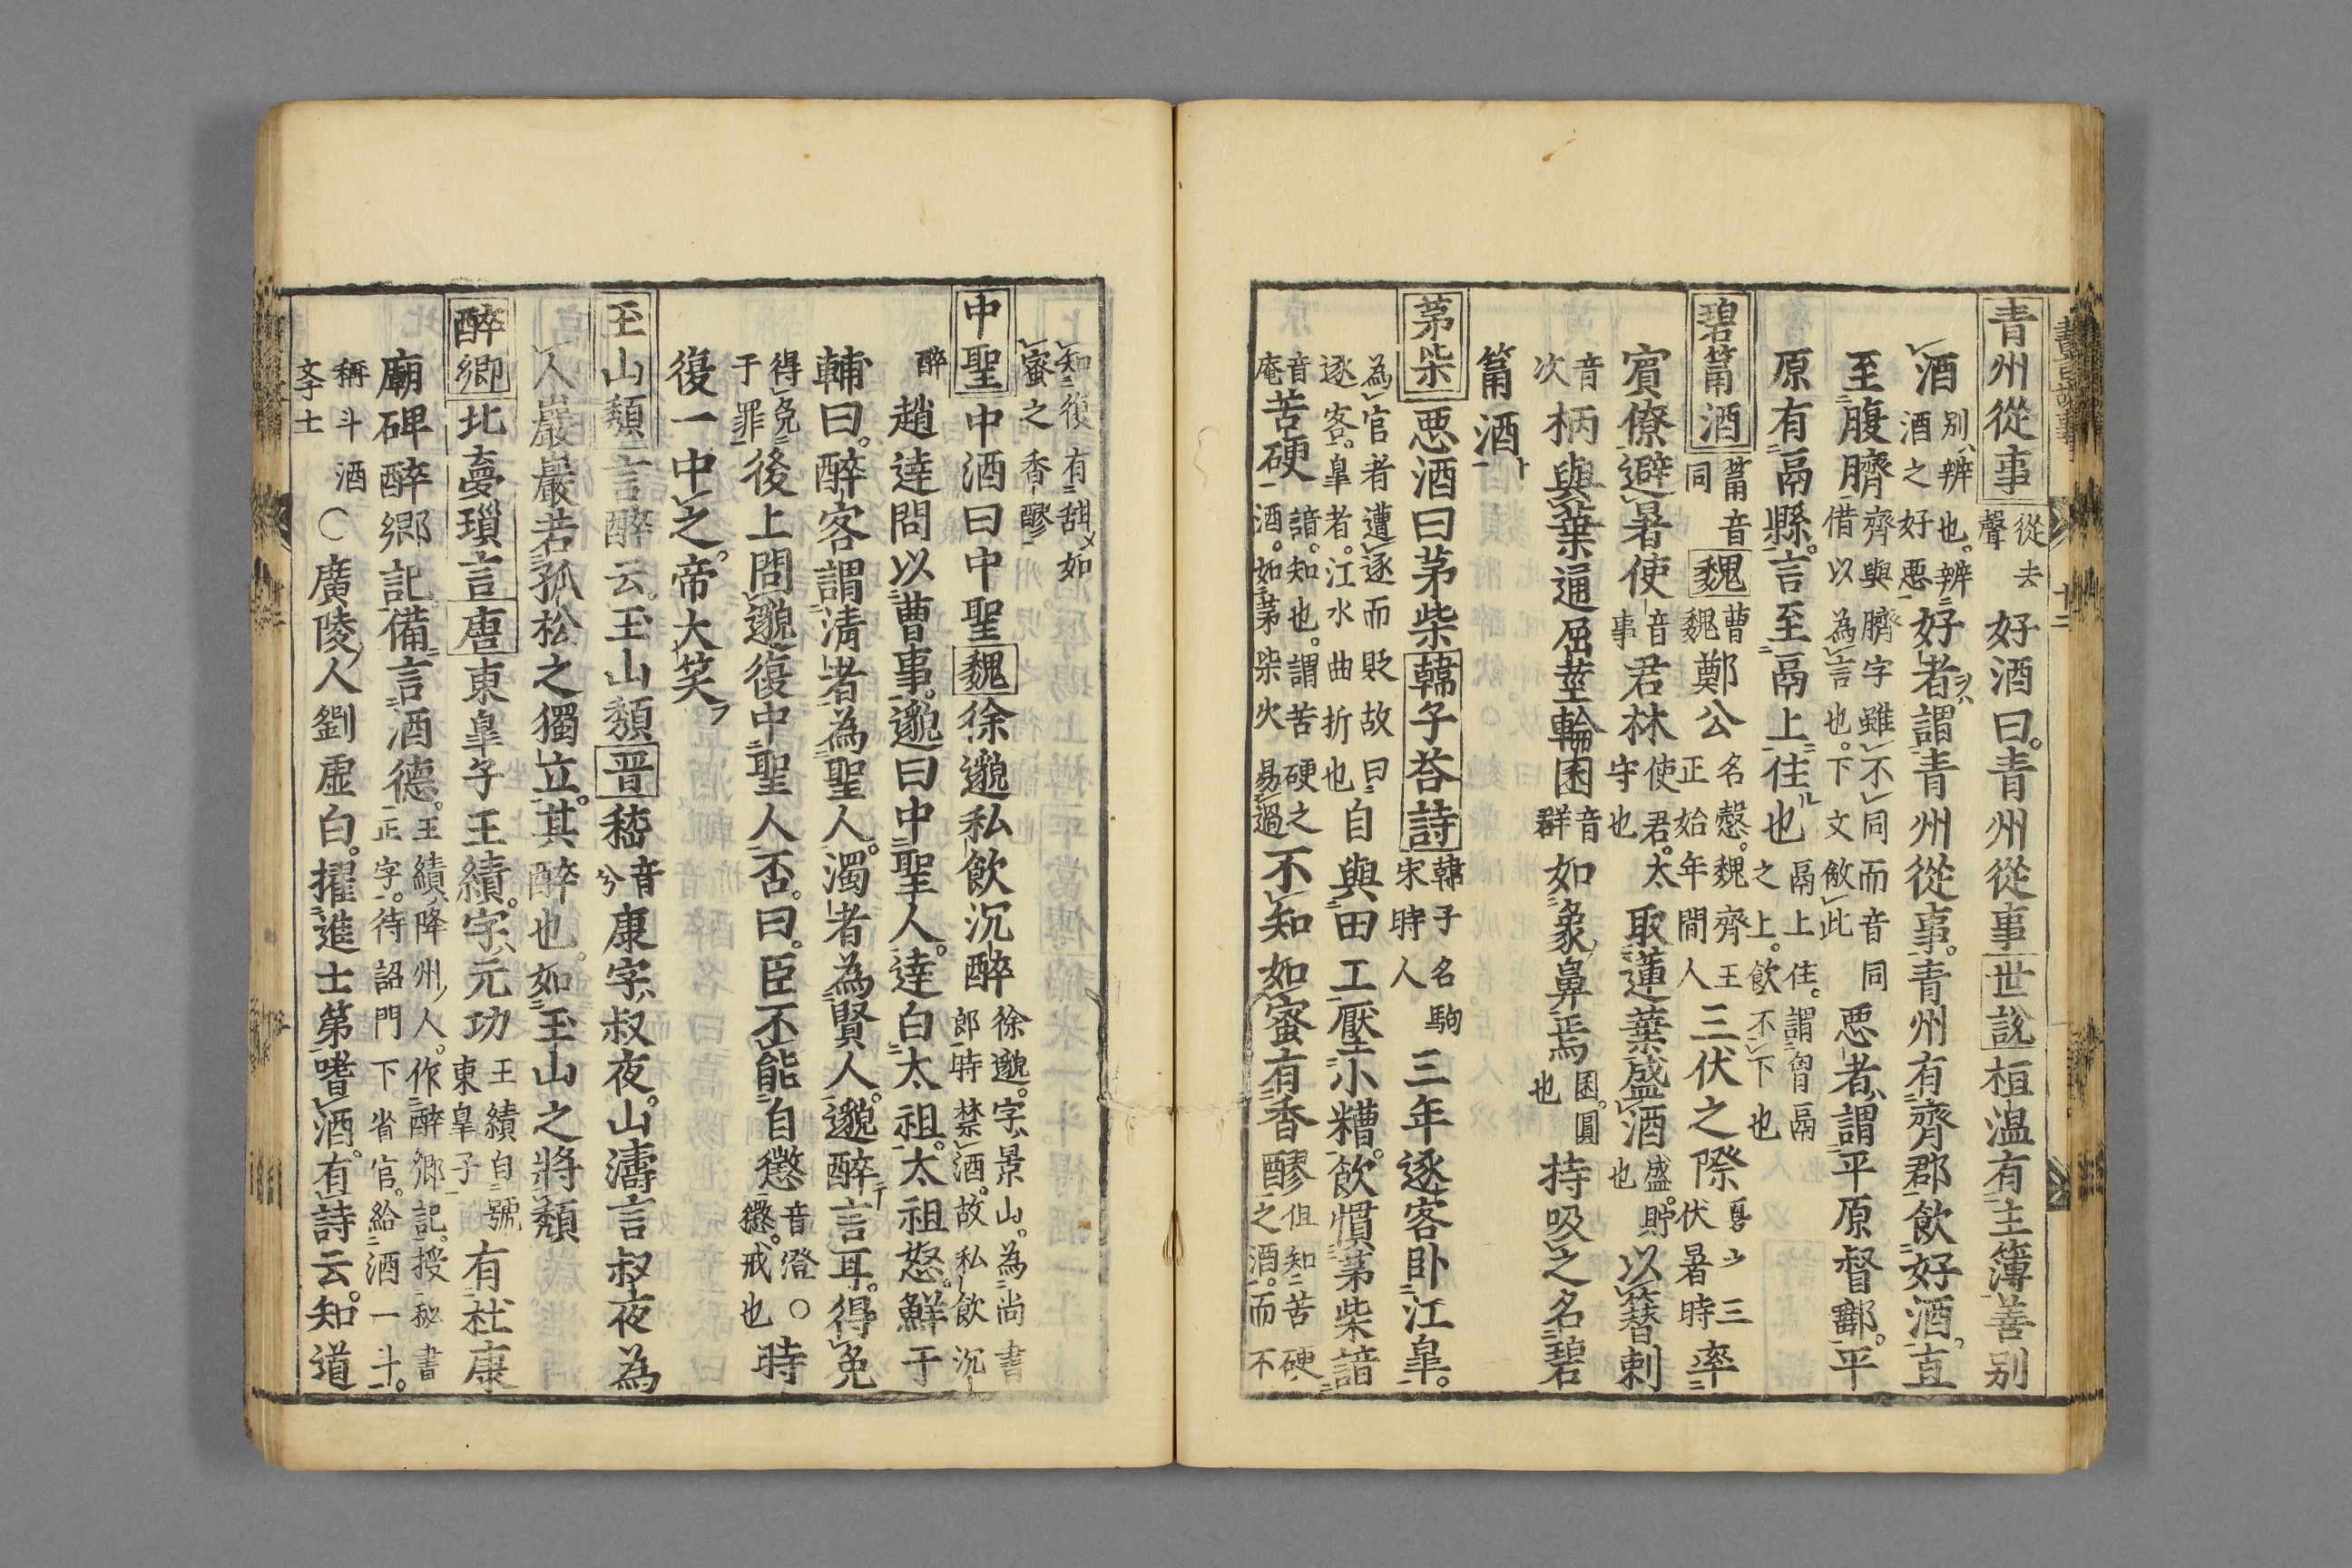 青州從事從去聲好酒曰青州從事世說桓温有主簿善别
酒别辨也辨酒之好惡好者謂青州從事青州有齊郡飲好酒直
至腹臍齊與臍字雖不同而音同借以為言也下文倣此惡者謂平原督郵平
原有鬲縣言至鬲上住也鬲上住謂胷鬲之上飲不下也
碧筩酒筩音同魏曹魏鄭公名慤魏齊王正始年間人三伏之際三伏暑時率
賓僚避暑使音事君林使君太守也取蓮葉盛酒盛貯也以簪刺
音次柄與葉通屈莖輪囷音群如象鼻焉囷圓也持吸之名碧
筩酒
茅柴惡酒曰茅柴韓子苔詩韓子名駒宋時人三年逐客卧江皐
為官者遭逐而貶故曰逐客皐者江水曲折也自與田工壓小糟飲慣茅柴諳
音庵苦硬諳知也謂苦硬之酒如茅柴火易過不知如蜜有香醪但知苦硬之酒而不
知復有甜如蜜之香醪
中聖中酒曰中聖魏徐邈私飲沉醉徐邈字景山為尚書郎時禁酒故私飲沉
醉趙達問以曹事邈曰中聖人達白太祖太祖怒鮮于
輔曰醉客謂清者為聖人濁者為賢人邈醉言耳得免
得免于罪後上問邈復中聖人否曰臣不能自懲音澄懲戒也○時
復一中之帝大笑
玉山頹言醉云玉山頹晋嵇音兮康字叔夜山濤言叔夜為
人巖巖若孤松之獨立其醉也如玉山之將頹
醉鄉北夢瑣言唐東皐子王績字元功王績自號東皐子有杜康
廟碑醉鄉記備言酒德王績降州人作醉鄉記授秘書正字待詔門下省官給酒一斗
稱斗酒學士○廣陵人劉虛白擢進士第嗜酒有詩云知道